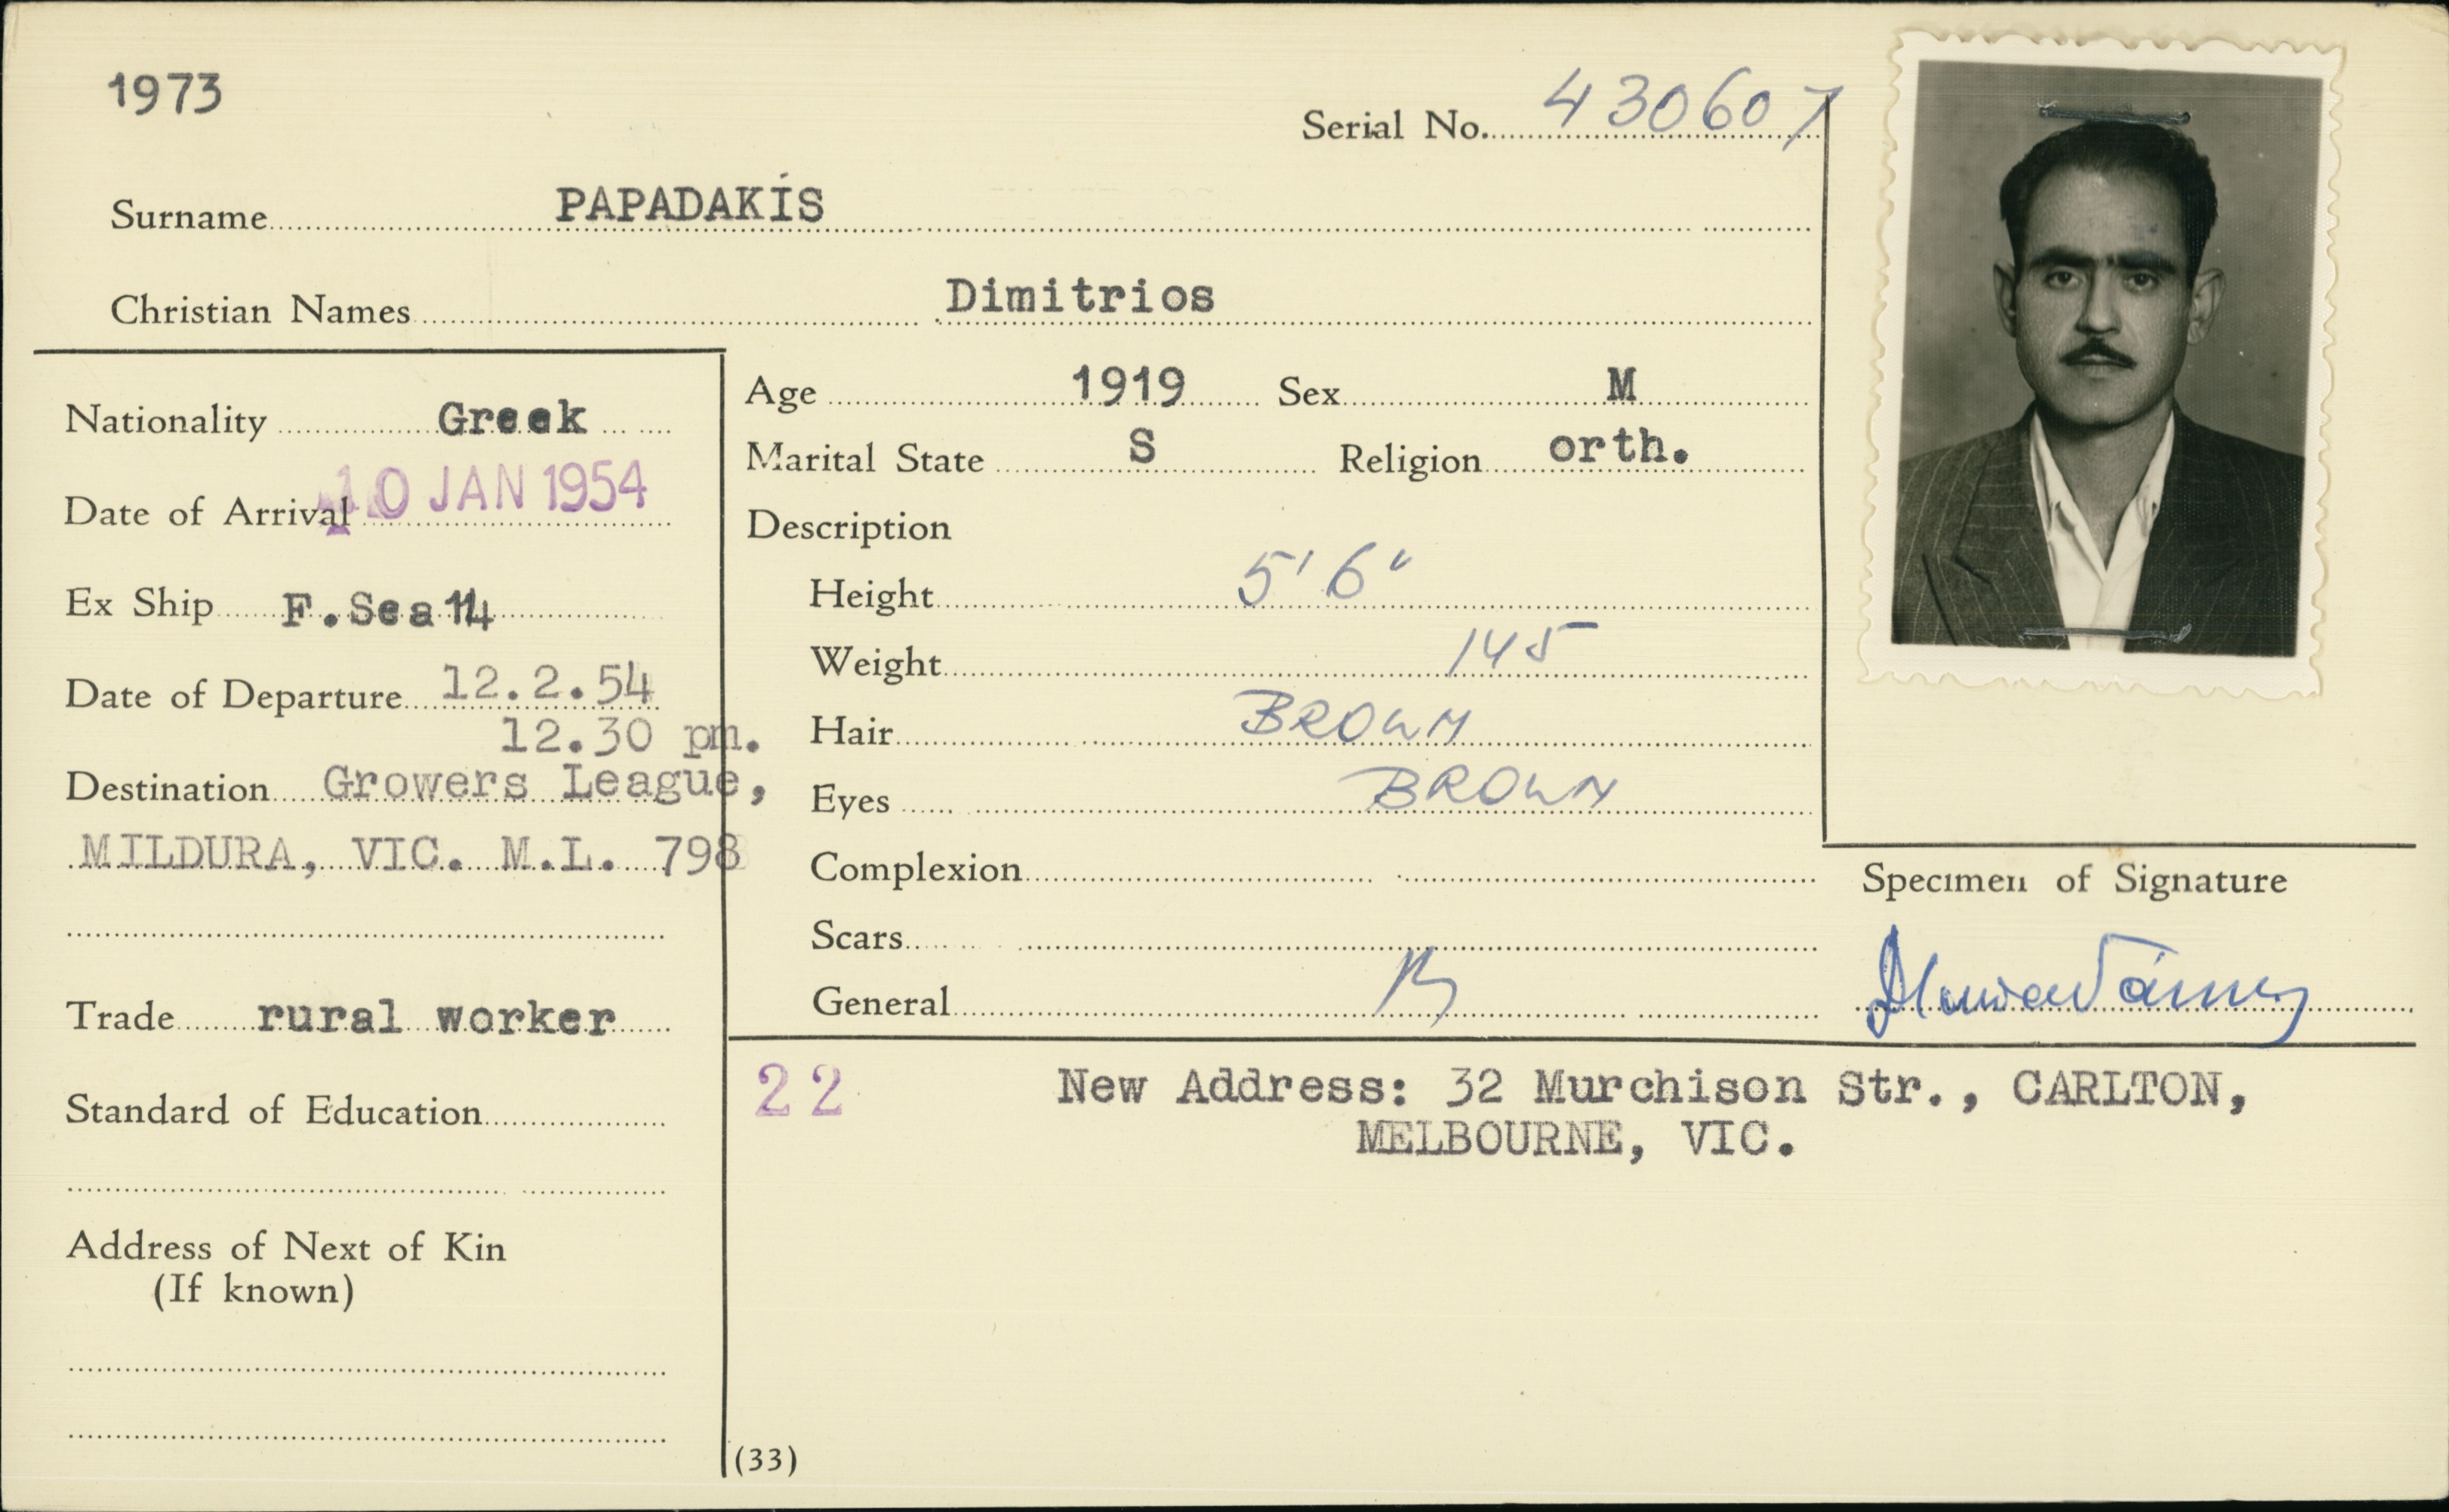 1973
Serial No. 430607
Surname PAPADAKIS
Christian Names Dimitrios
Nationality Greek
Date of Arrival 10 JAN 1954
Ex Ship F.Sea 14
Date of Departure 12.2.54
12.30 pm.
Destination Growers League,
MILDURA, VIC. M.L. 798
Trade rural worker
Standard of Education
Address of Next of Kin
(If known)
Age 1919 Sex M
Marital State S Religion orth.
Description
Height 5' 6"
Weight 145
Hair BROWN
Eyes BROWN
Complexion
Scars
General
Specimen of Signature
22 New Address: 32 Murchison Str., CARLTON,
MELBOURNE, VIC.
(33)